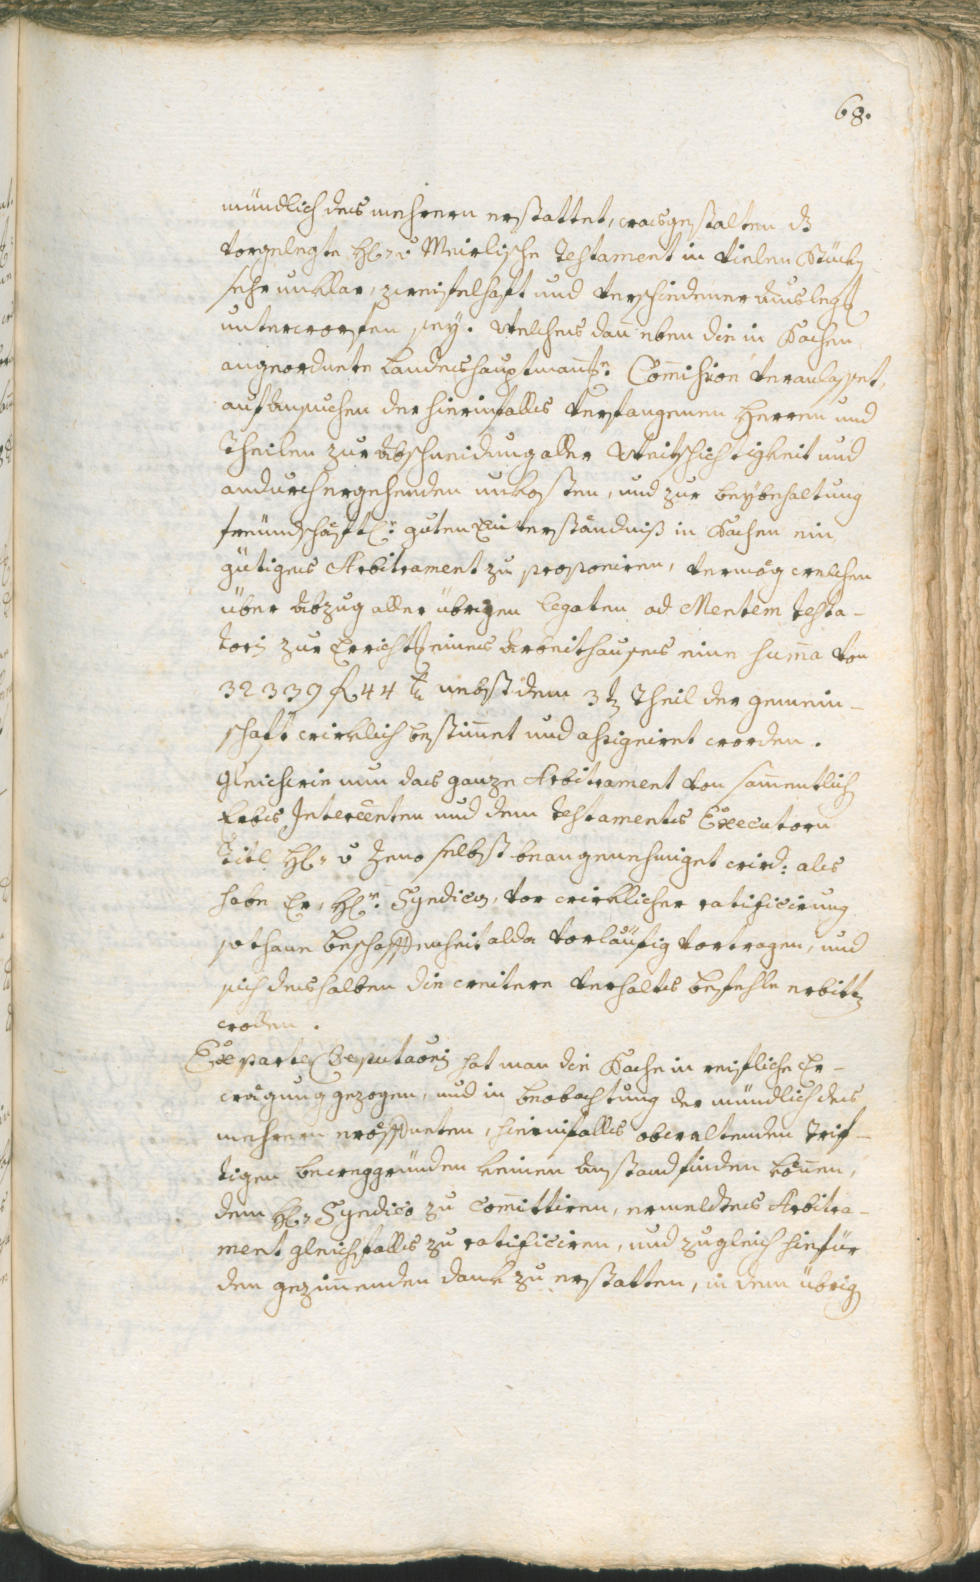 68.
mündlich des mehrern erstattet, wasgestalten dz
vorgelegte H: v: Meirlische Testament in vielen Stückhen
sehr unklar, zweifelhaft und verschiedener Auslegung
unterworfen sey. Welches dan eben die in Sachen
angeordnete Landeshauptmannschl: Commission veranlasset,
auf Ansuchen der hierinfalls verfangenen Herren und
Theilen zur Abschneidung aller Weitschichtigkeit und
andurch ergehenden unkosten, und zur beybehaltung
freundschäftl: guten Einverständniß in Sachen ein
gütiges Arbitrament zu proponiren, vermög welchen
über Abzug aller übrigen Legaten ad Mentem Testa-
toris zur Errichtung eines Arbeithauses eine Summa von
32339 f 44 xr nebst dem 3ten Theil der gemein-
schaft wirklich bestimmet und assigniret worden.
Gleichwie nun das ganze Arbitrament von sammentlichen
Erbs Interessenten und dem Testaments Executorn
Titl H: v Zeno selbst beangenehmiget wird: als
habe Er, H: Syndicus, vor wirklicher ratificirung
sothane beschaffenheit alda vorläufig vortragen, und
sich deshalben die weitere verhalts befehle erbitten
wollen.
Ex parte Deputationis hat man die Sache in reifliche Er-
wägung gezogen, und in beobachtung der mündlich des
mehrern eröffneten, hierinfalls obwaltenden Trif-
tigen beweggründen keinen Anstand finden können,
dem H: Syndico zu committiren, ermeldtes Arbitra-
ment gleichfalls zu ratificiren, und zugleich hiefür
den gezimmenden dank zu erstatten, in dem übrigen